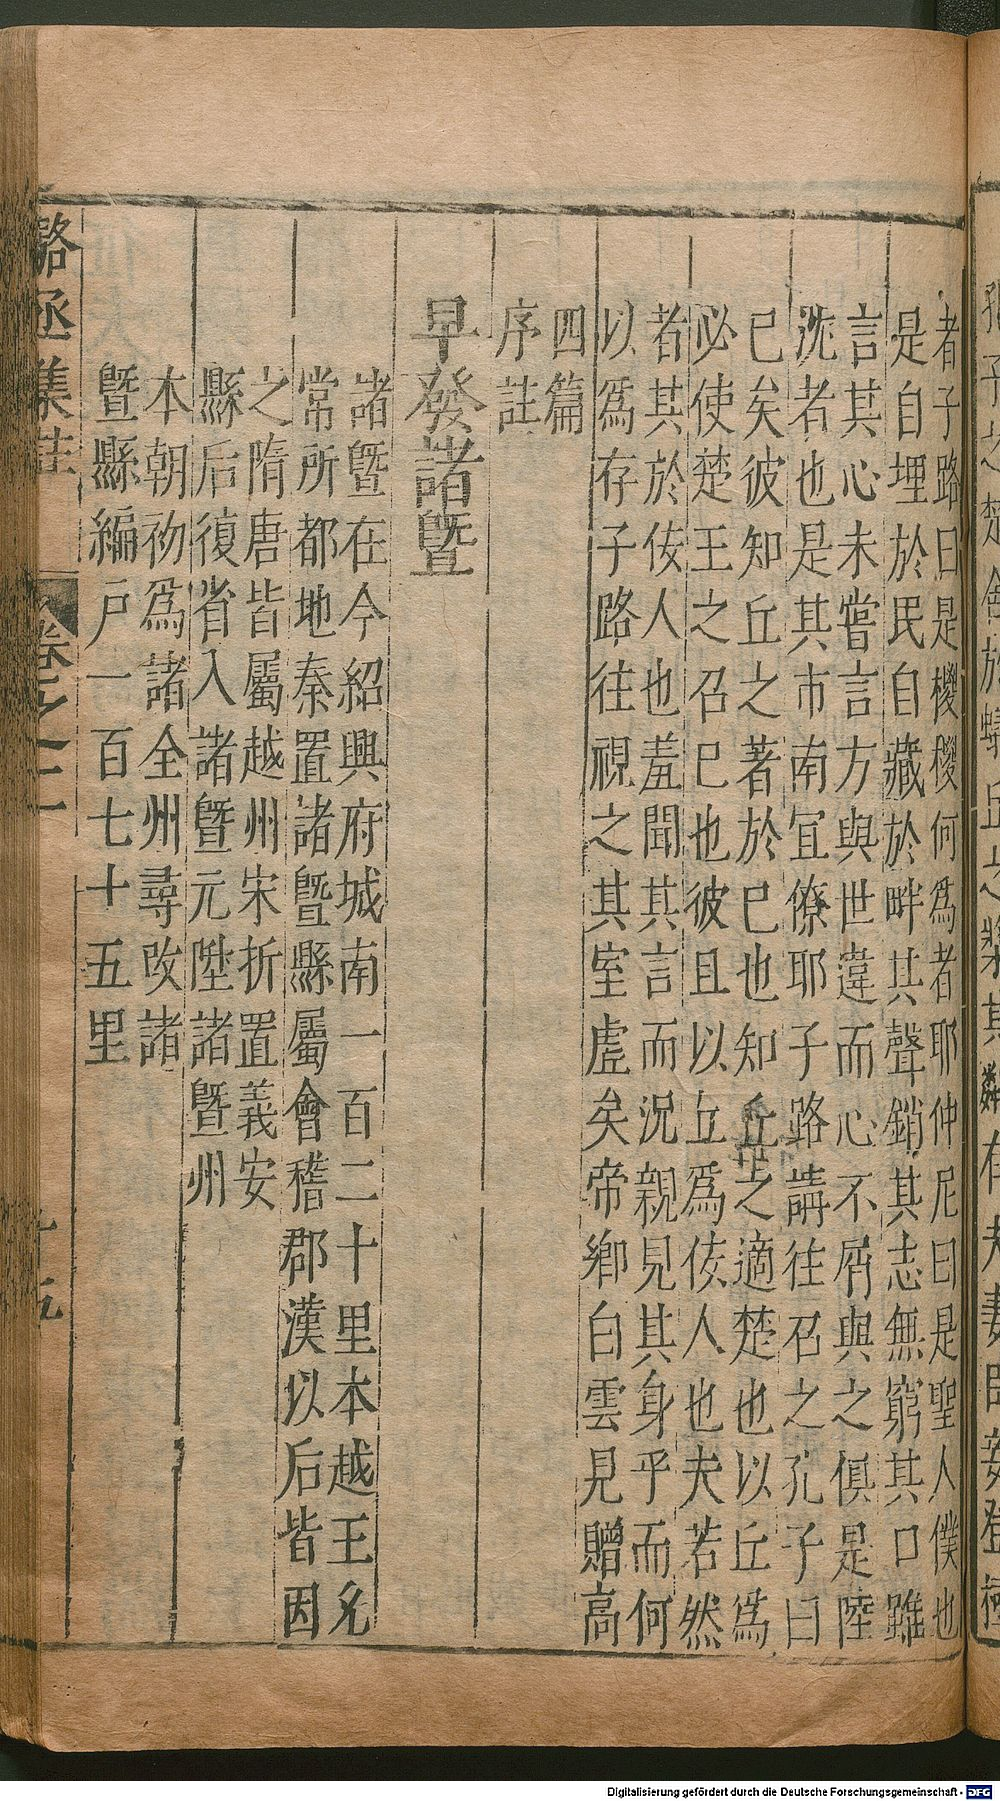 者子路曰是稷稷何爲者耶仲尼曰是聖人僕也
是自埋於民自藏於畔其聲銷其志無窮其口雖
言其心未嘗言方與世違而心不屑與之俱是陸
沈者也是其市南宜僚耶子路請往召之孔子曰
已矣彼知丘之著於已也知丘之適楚也以丘爲
必使楚王之召已也彼且以丘爲佞人也夫若然
者其於佞人也羞聞其言而況親見其身乎而何
以爲存子路往視之其室虗矣帝鄉白雲見贈高
四篇
序註
早發諸曁
諸曁在今紹興府城南一百二十里本越王允
常所都地秦置諸曁縣屬會稽郡漢以后皆因
之隋唐皆屬越州宋折置義安
縣后復省入諸曁元陞諸曁州
本朝初爲諸全州尋改諸
曁縣編戸一百七十五里
駱丞集註
卷之二
十五
Digitalisierung gefördert durch die Deutsche Forschungsgemeinschaft - DFG